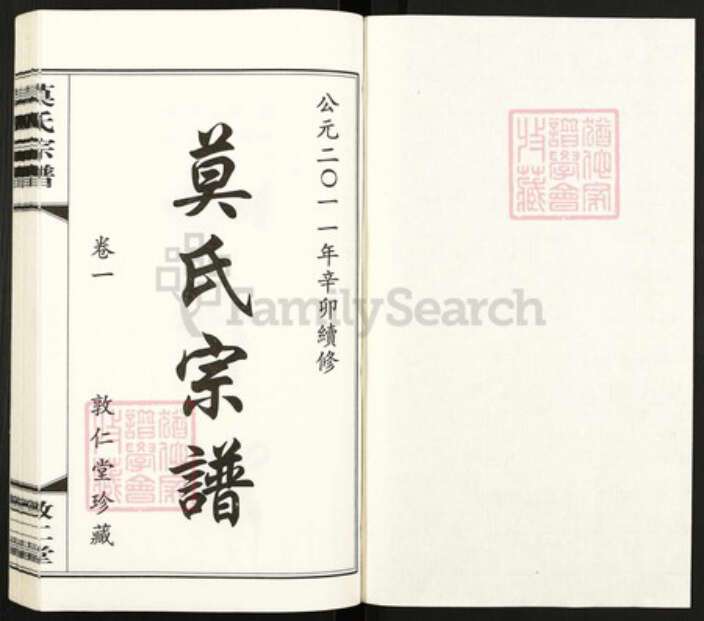 公元二〇一一年辛卯續修
莫氏宗譜
卷一
敦仁堂珍藏
莫氏宗譜
敦仁堂
FamilySearch